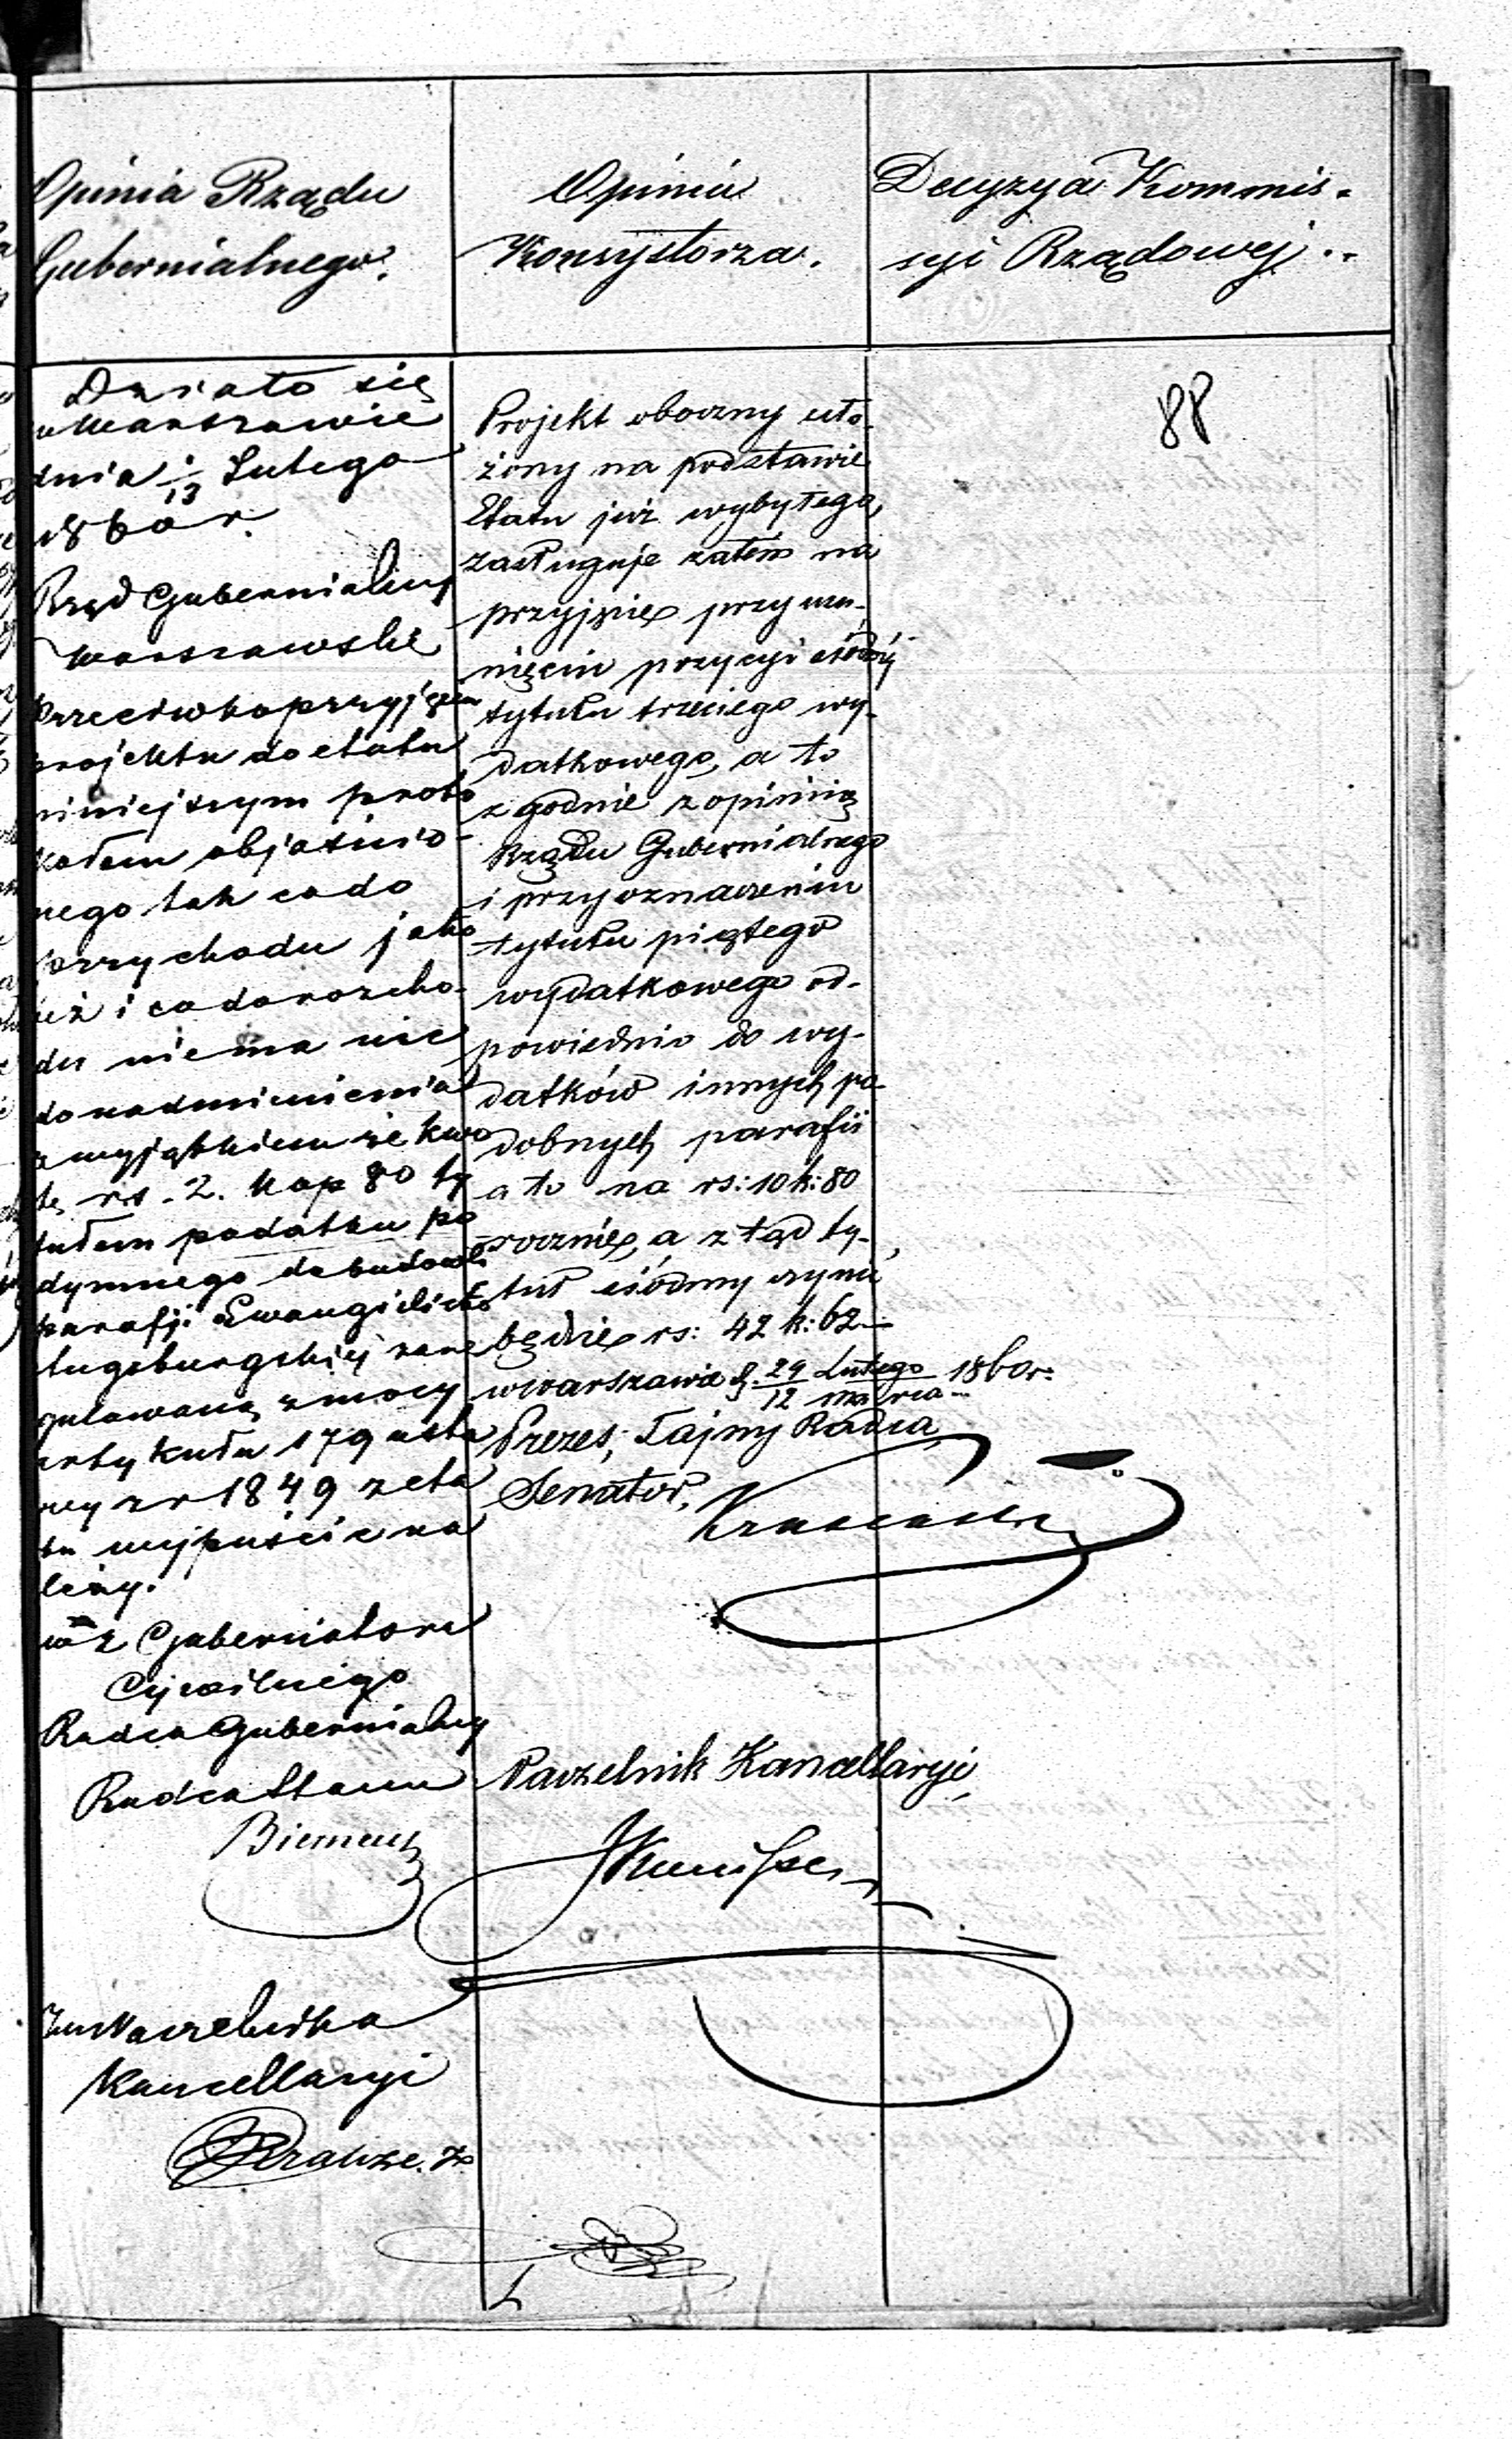 Opinia Rządu
Gubernialnego.
Działo się
w Warszawie
dnia 1/13 Lutego
1860 r.
Rząd Gubernialny
Warszawski
Przeciwko przyjęciu
projektu do etatu
niniejszym proto
kołem objaśnio-
nego tak co do
przychodu jako
też i co do rozcho-
du niema nic
do nadmienienia
z wyjątkiem że kwo
tę rs. 2. kop 80 ty
tułem podatku po
dymnego do budowli
parafji Ewangielicko
Augsburgskiej
gulowaną z mocy
artykułu 179 usta
wy z r 1849 z eta
tu wypuścić na
leży.
w z Gubernatora
Cywilnego
Radca Gubernialny
Radca Stanu
Za Naczelnika
Kancellaryi
Opinia
Konsystorza.
Projekt oboczny uło-
żony na podstawie
Etatu już wybyłego,
zasługuje zatém na
przyjęcie przy usu-
nięciu pozycyi siódméj
tytułu trzeciego wy-
datkowego, a to
zgodnie z opinią
Rządu Gubernialnego
i przy oznaczeniu
tytułu piątego
wydatkowego od-
powiednio do wy-
datków innych po-
dobnych parafii
a to na rs: 10 k: 80
rocznie, a z tąd ty-
tuł siódmy czynić
będzie rs: 42 k: 62
w Warszawie d. 29 Lutego/12 Marca 1860 r.
Prezes, Tajny Radca
Senator,
Naczelnik Kancellaryi,
Decyzya Kommis-
syi Rządowej..
88